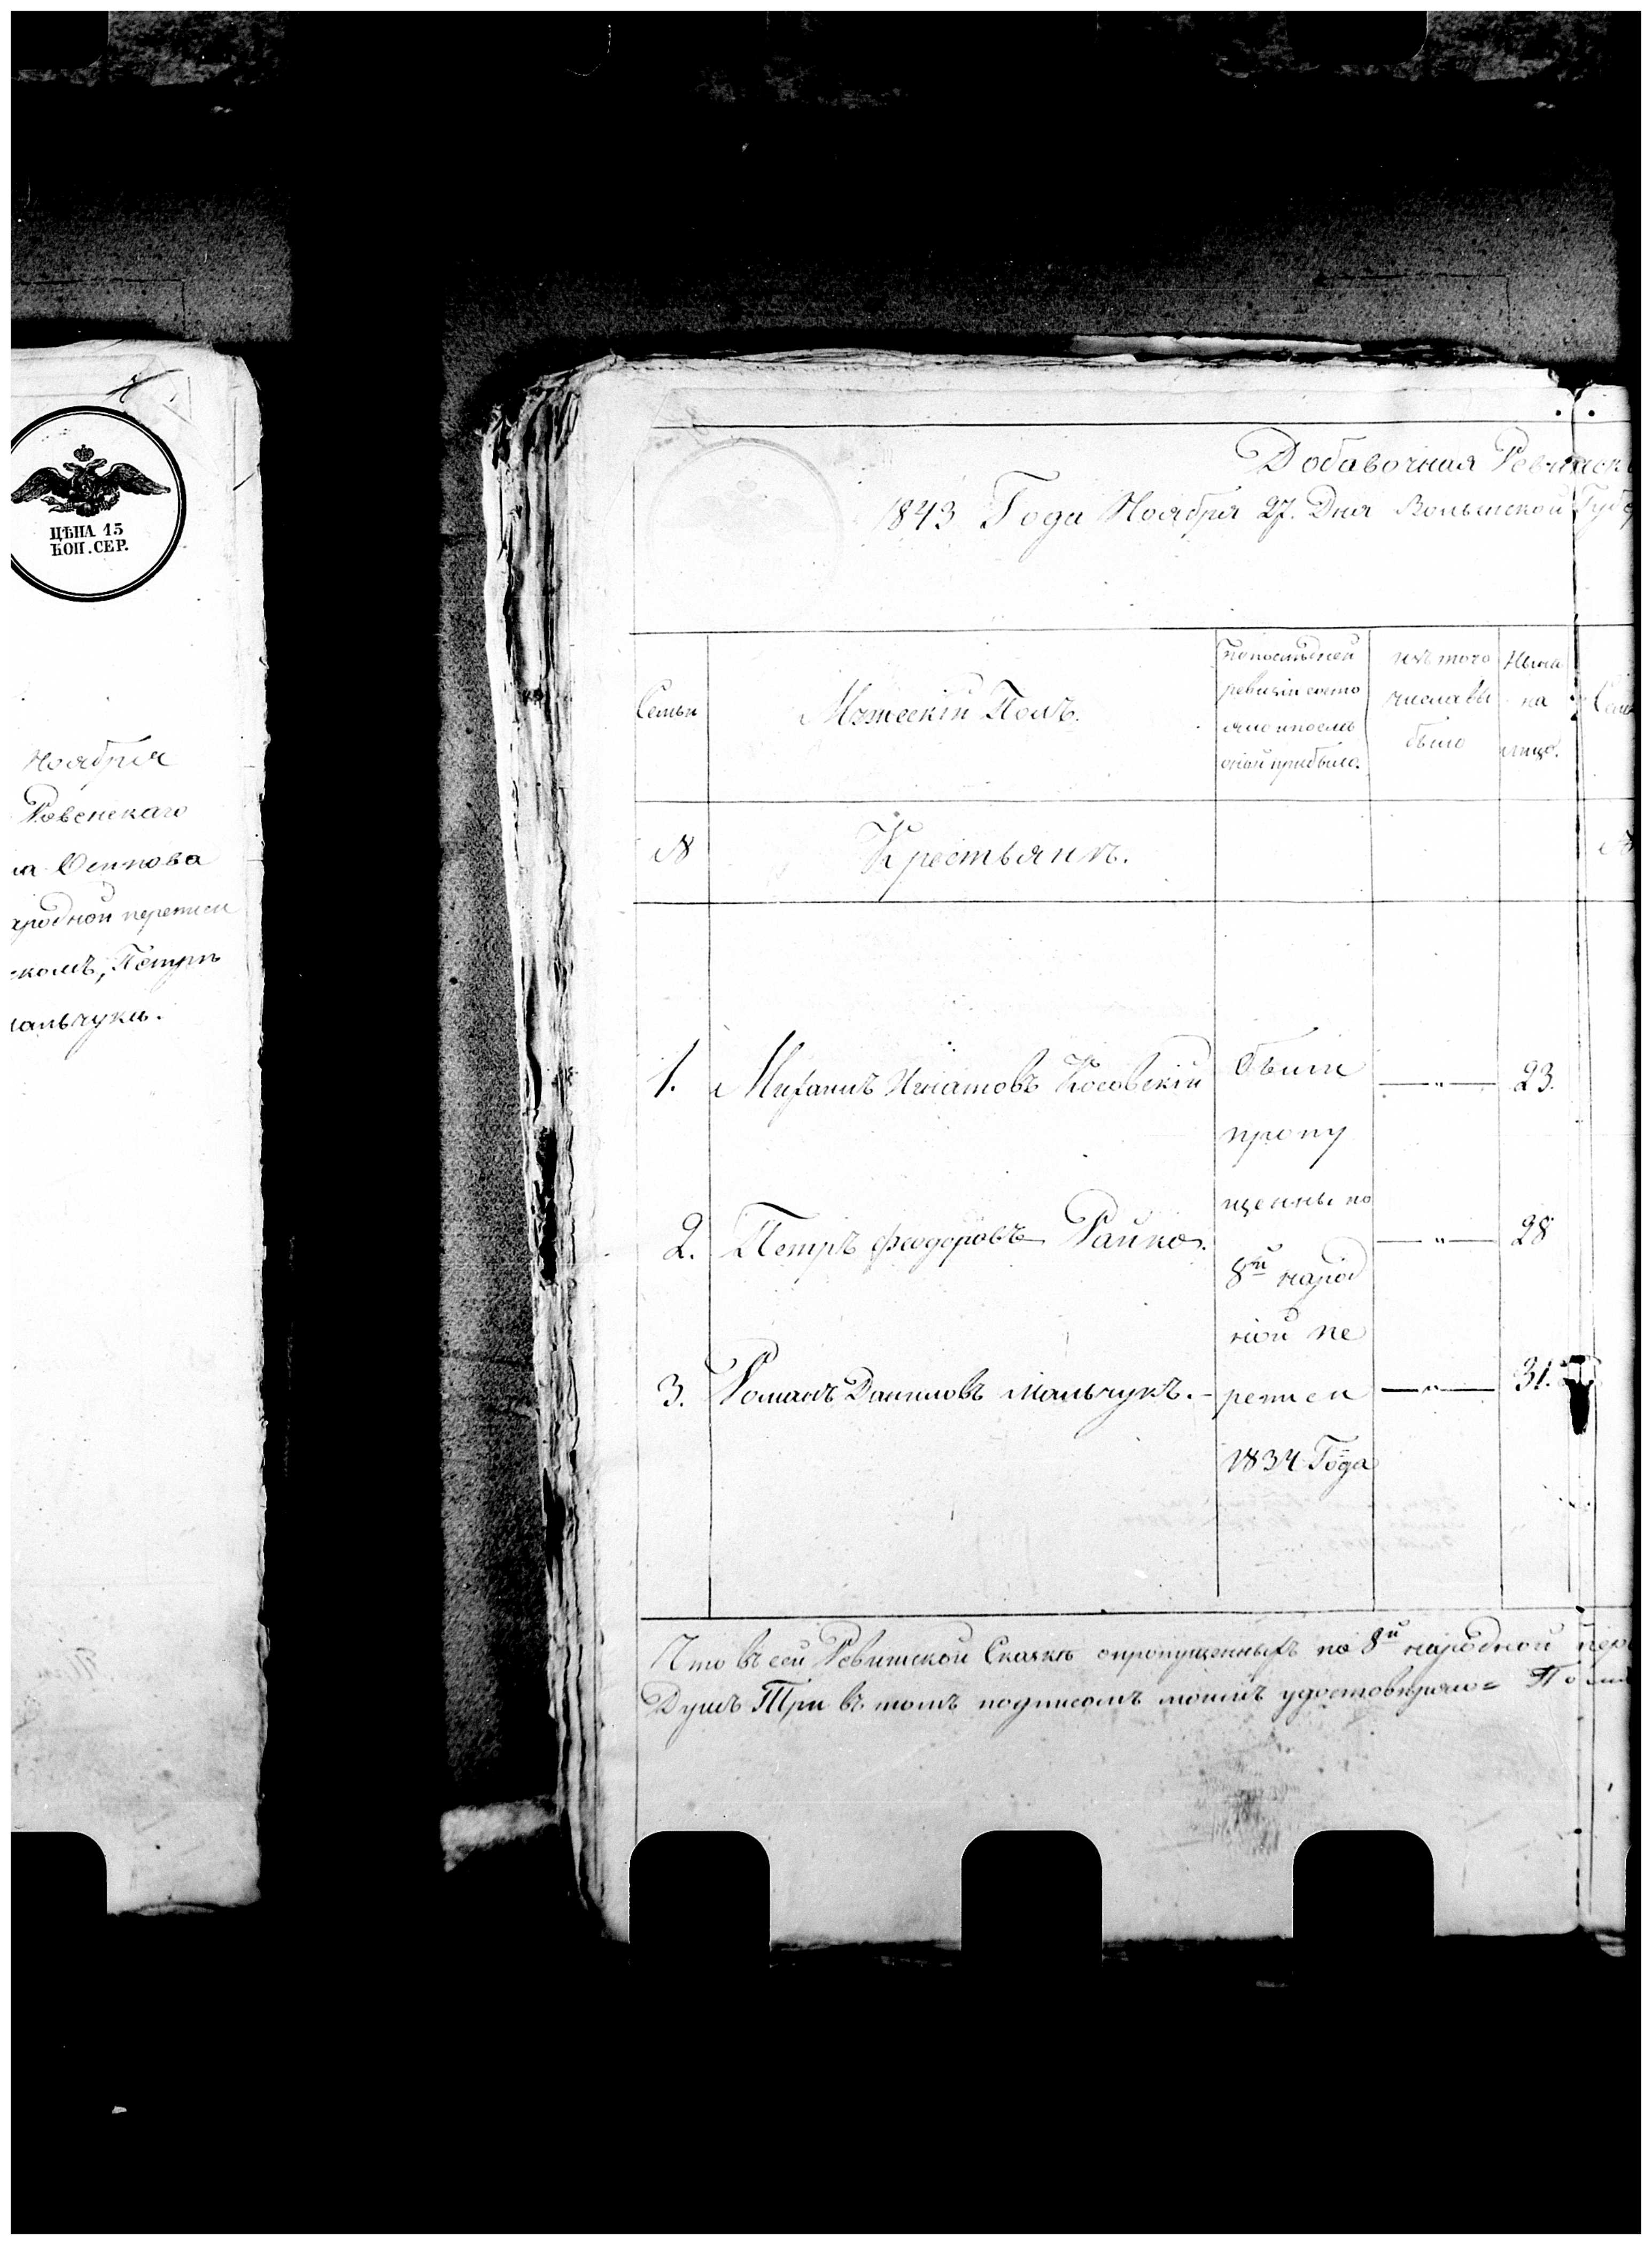 ЦѢНА 15
КОП. СЕР.
Ноября
Ровенскаго
на Осипова
ародной переписи
скомъ, Петрѣ
мальчуки.
Добавочная Ревизск
1843 Года Ноября 27. Дня Волынской Губе
Семьи
Мужескій Полъ.
по последней
ревизіи состо
яло и после
оной прибыло.
изъ того
числа вы
было
Нынѣ
на
лицо.
№
Крестьянѣ.
1. Михаилъ Игнатовъ Косовскій
Были
пропу
щенны по
8й народ
ной пе
реписи
1834 Года
— „ — 23.
2. Петръ Феодоровъ Райко.
— „ — 28
3. Романъ Даниловъ Мальчукъ.
— „ — 31.
Что въ сей Ревизской Сказкѣ о пропущенныхъ по 8й народной пер
Душъ Три въ томъ подписомъ моимъ удостовѣряю=